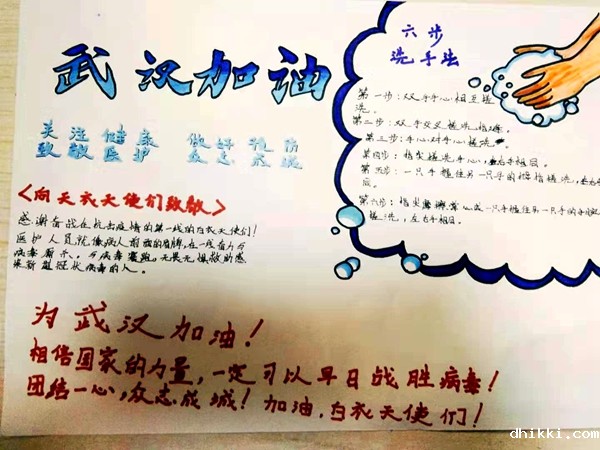 武汉加油
关注健康 做好预防
致敬医护 众志成城
<向天衣天使们致敬>
感谢奋战在抗击疫情的第一线的白衣天使们!
医护人员就像病人前面的盾牌,在一线奋力与
病毒厮杀,与病毒赛跑,无畏无惧救助感
染新型冠状病毒的人。
为武汉加油!
相信国家的力量,一定可以早日战胜病毒!
团结一心,众志成城!加油,白衣天使们!
六步
洗手法
第一步:双手手心相互搓
洗。
第二步:双手交叉搓洗指缝。
第三步:手心对手心搓洗
第四步:指尖搓洗手心,左右手相同。
第五步:一只手握住另一只手的拇指搓洗,
第六步:指尖 一只手握住另一只手的
搓洗,左右手相同。
dhikki.com